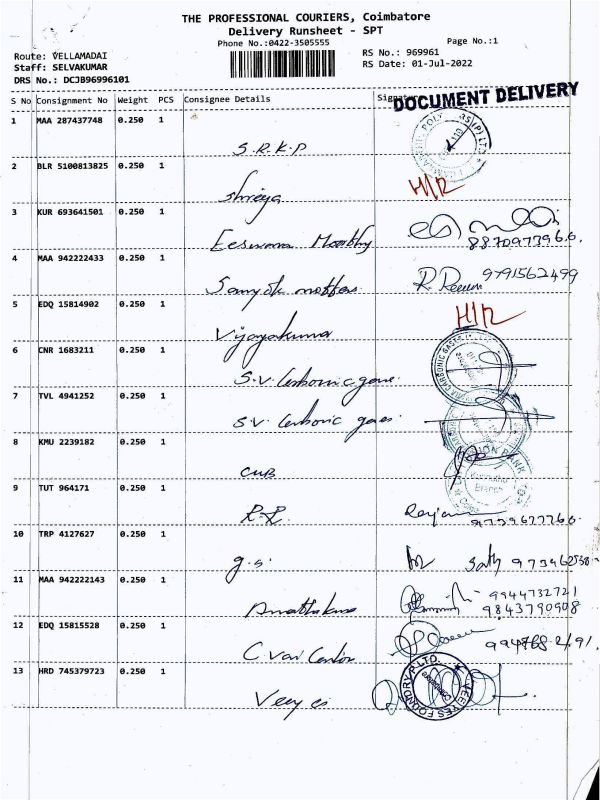 THE PROFESSIONAL COURIERS, Coimbatore
Delivery Runsheet - SPT
Phone No.:0422-3505555
Page No.:1
Route: VELLAMADAI
RS No.: 969961
Staff: SELVAKUMAR
RS Date: 01-Jul-2022
DRS No.: DCJB96996101
S No Consignment No Weight PCS Consignee Details Signature
DOCUMENT DELIVERY
1 MAA 287437748 0.250 1
S.R.K.P
2 BLR 5100813825 0.250 1
H/R
Shreya
3 KUR 693641501 0.250 1
Eeswara Moorthy
8870973966.
4 MAA 942222433 0.250 1
9791562499
5 EDQ 15814902 0.250 1
H/R
Vijayakumar
6 CNR 1683211 0.250 1
S.V. Carbonic gases
7 TVL 4941252 0.250 1
S.V. Carbonic gases.
8 KMU 2239182 0.250 1
CUB
Branch
9 TUT 964171 0.250 1
R.R.
10 TRP 4127627 0.250 1
g.s.
11 MAA 942222143 0.250 1
9944732721
9843790908
12 EDQ 15815528 0.250 1
13 HRD 745379723 0.250 1
FOUNDRY P LTD.